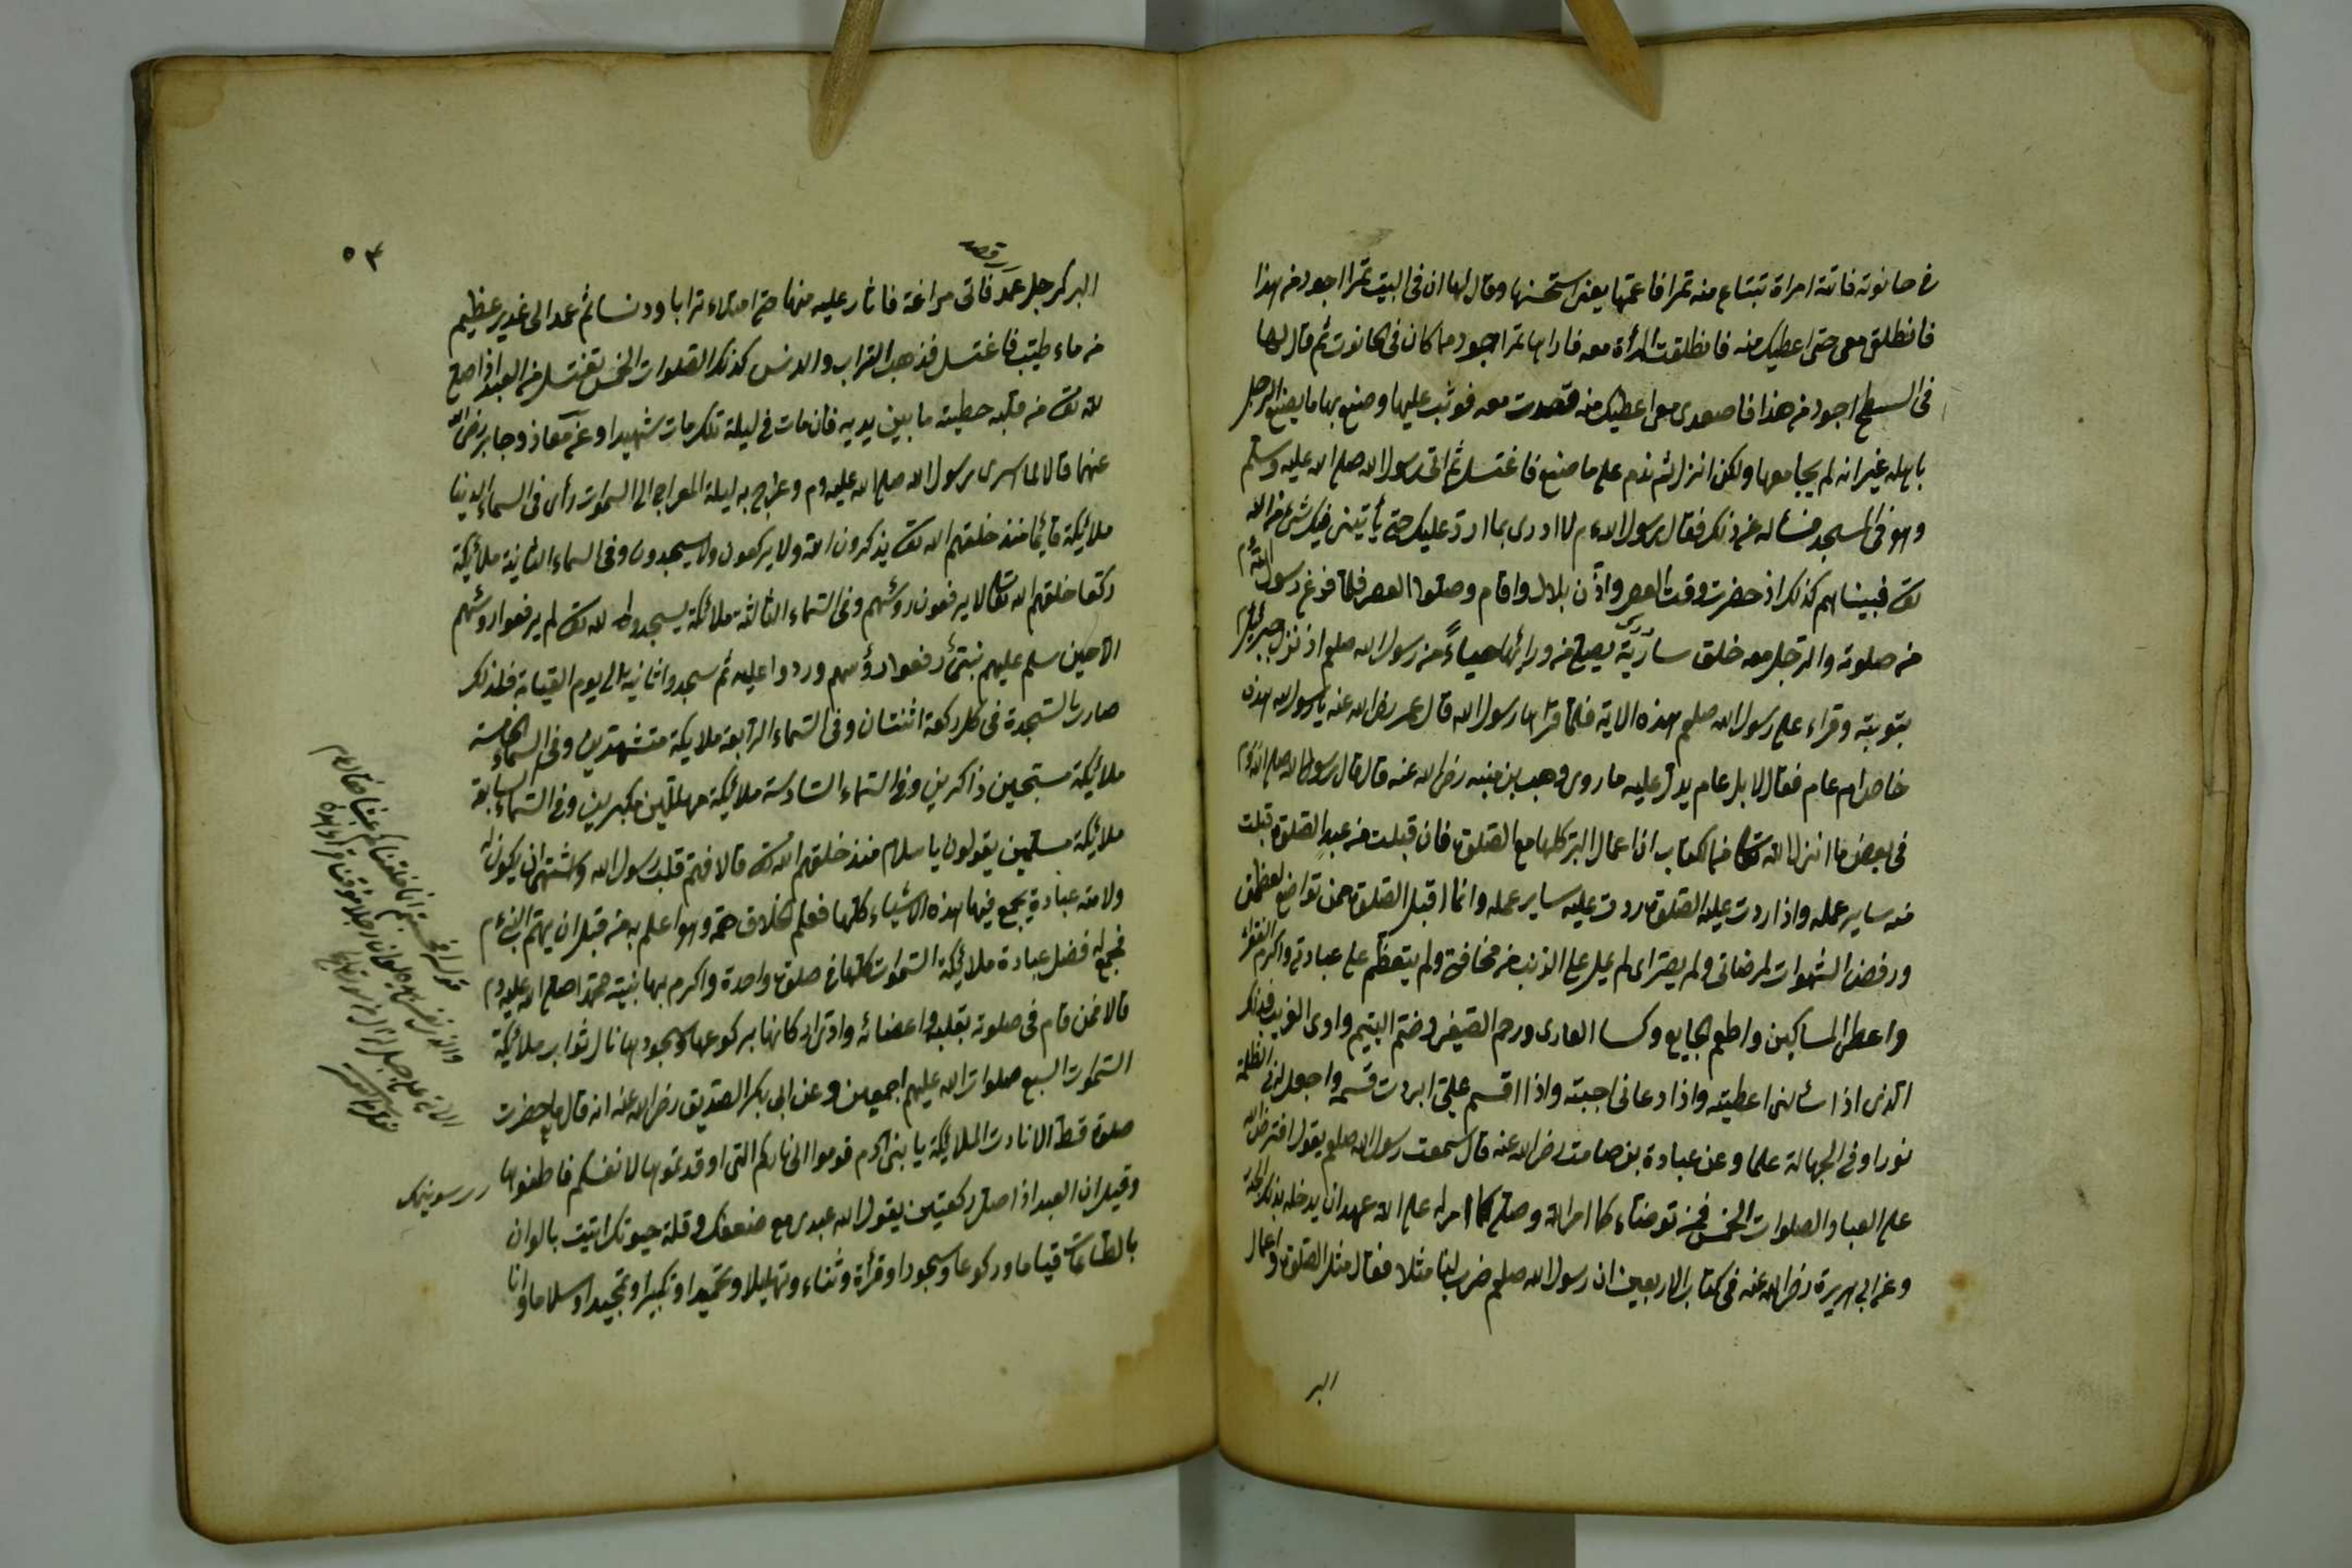 في حانوته فاتته امراة تبتاع منه تمرا فاعجبتها يعني استحسنها وقال لها ان في البيت تمرا اجود من هذا
فانطلقي معي حتى اعطيك منه فانطلقت المرأة معه فاراها تمرا اجود مما كان في الحانوت ثم قال لها
في السطح اجود من هذا فاصعدي معي اعطيك منه فصعدت معه فوثب عليها وصنع بها ما يصنع الرجل
باهله غير انه لم يجامعها ولكن انزل ثم ندم على ما صنع فاغتسل ثم اتى رسول الله صلى الله عليه وسلم
وهو في المسجد فسأله عن ذلك فقال رسول الله م لا ادري بما ارد عليك حتى يأتيني فيك شئ من الله
تعـ فبينما هم كذلك اذ حضرت وقت العصر واذن بلال واقام وصلوا العصر فلما فرغ رسول الله م
من صلوته والرجل معه خلف سارية يصلي من ورائها حياءً من رسول الله صلعم اذ نزل جبرئيل
بتوبته وقراء على رسول الله صلعم هذه الاية فلما قرأها رسول الله قال عمر رضي الله عنه يا رسول الله هذه
خاص ام عام فقال لا بل عام يدل عليه ما روى وهب بن منبه رضي الله عنه قال قال رسول الله صلى الله م
في بعض ما انزل الله تعالى من الكتاب ان اعمال البر كلها مع الصلوة فان قبلت من عبد الصلوة قبلت
منه ساير عمله واذا ردت عليه الصلوة ردت عليه ساير عمله وانما اقبل الصلوة ممن تواضع لعظمتي
ورفض الشهوات لمرضاتي ولم يصر اى لم يمل على الذنب من مخافتي ولم يتعظم على عبادتي واكرم الفقراء
واعطى المساكين واطعم الجايع وكسا العارى ورحم الضعيف وضم اليتيم واوى الغريب فذلك
الذي اذا سألني اعطيته واذا دعاني اجبته واذا اقسم علي ابررت قسمه واجعل له في الظلمة
نورا وفي الجهالة علما وعن عبادة بن صامت رضي الله عنه قال سمعت رسول الله صلعم يقول افترض الله
على العباد الصلوات الخمس فمن توضاء كما امر الله وصلى كما امر له على الله عهد ان يدخله بذلك الجنة
وعن ابي هريرة رضي الله عنه في كتاب الاربعين ان رسول الله صلعم ضرب لنا مثلا فقال مثل الصلوة واعمال
البر
٥٣
قصد
البر كرجل عمد فاتى مراغة فاثار عليه منها حتى امتلاء ترابا ودنسا ثم عمد الى غدير عظيم
من ماء طيب فاغتسل فذهب التراب والدنس كذلك الصلوات الخمس تغتسل من العبد اذا صلى
لله تعـ من قلبه خطيئة ما بين يديه فان مات في ليلة تلك مات شهيدا وعن معاذ وجابر رضي الله
عنهما قالا لما اسرى برسول الله صلى الله عليه وم وعرج به ليلة المعراج الى السموات رأى في السماء الدنيا
ملائكة قائما منذ خلقهم الله تعـ يذكرون الله ولا يركعون ولا يسجدون وفي السماء الثانية ملائكة
ركعا خلقهم الله تعالى لا يرفعون روسهم وفي السماء الثالثة ملائكة يسجدون لله تعـ لم يرفعوا روسهم
الا حين سلم عليهم نبي رفعوا رؤسهم وردوا عليه ثم سجدوا ثانية الى يوم القيامة فلذلك
صارت السجدة في كل ركعة اثنتان وفي السماء الرابعة ملايكة متشهدين وفي السماء الخامسة
ملائكة مسبحين ذاكرين وفي السماء السادسة ملائكة مهللين مكبرين وفي السماء السابعة
ملائكة مسلمين يقولون يا سلام منذ خلقهم الله تعـ قالا فهم قلب رسول الله واشتهى ان يكون له
ولامته عبادة يجمع فيها هذه الاشياء كلها فعلم الخلاق همه وهو اعلم به من قبل ان يهتم النبي م
فجمع له فضل عبادة ملائكة السموات كلها في صلوة واحدة واكرم بها نبيه محمدا صلى الله عليه وم
قالا فمن قام في صلوته بقلبه واعضائه وادى اركانها بركوعها وسجودها نال ثواب ملائكة
السموات السبع صلوات الله عليهم اجمعين وعن ابي بكر الصديق رضي الله عنه انه قال ما حضرت
صلوة قط الا نادت الملائكة يا بني آدم قوموا الى ناركم التي اوقدتموها لانفسكم فاطفئوها
وقيل ان العبد اذا صلى ركعتين يقول الله عبدي مع ضعفك وقلة حيوتك اتيت بالوان
بالطاعات قياما وركوعا وسجودا وقرأة وثناء وتهليلا وتحميدا وتكبيرا وتمجيدا وسلاما وانا